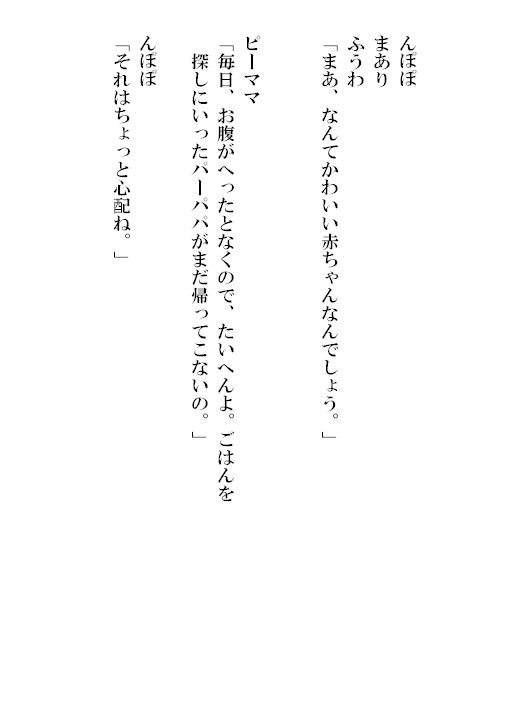 んぽぽ
まあり
ふうわ
「まあ、なんてかわいい赤ちゃんなんでしょう。」
ピーママ
「毎日、お腹がへったとなくので、たいへんよ。ごはんを
探しにいったパーパパがまだ帰ってこないの。」
んぽぽ
「それはちょっと心配ね。」